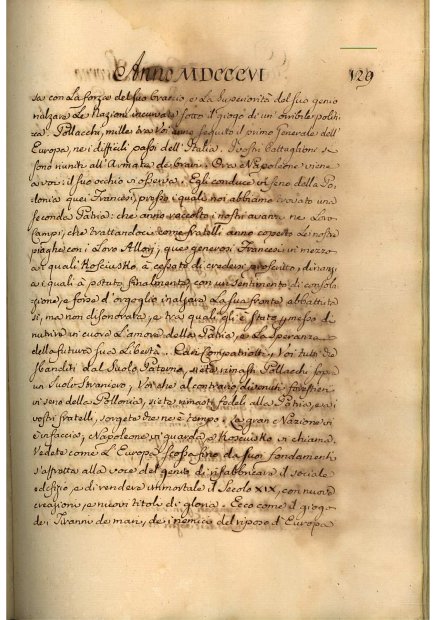 Anno MDCCCVI 129
sa con La forza del suo braccio, e La Superiorità del suo genio
rialzare Le Nazioni incurvate sotto il giogo di un'orribile politi-
ca. Pollacchi, mille tra Voi seguito il primo Generale dell'
Europa, nei difficili passi dell'Italia. I vostri Battaglioni si
sono riuniti all'Armata de' bravi. Ora Napoleone viene
a voi: il suo occhio vi osserva. Egli conduce in seno della Po-
lonia quei Francesi, presso i quali noi abbiamo trovato una
seconda Patria: che anno raccolto i nostri avanzi ne' Loro
campi, che trattandoci come fratelli anno coperto Le nostre
piaghe con i Loro Allori, que' generosi Francesi in mezzo
a i quali Kosciusko à cessato di credersi proscritto, dinanzi
a i quali à potuto finalmente con un sentimento di consola-
zione, e forse d'orgoglio inalzare La sua fronte abbattuta
sì, ma non disonorata, e trà quali gli è stato permesso di
nutrire in cuore L'amore della Patria, e La Speranza
della futura sua Libertà. Cari Compatriotti, Voi tutti che
sbanditi dal Suolo Paterno, siete rimasti Pollacchi sopra
un Suolo Straniero, Voi che al contrario divenuti forestieri
in seno della Pollonia, siete rimasti fedeli alla Patria, e a i
vostri fratelli, sorgete che ne è tempo. La gran Nazione vi
è in faccia, Napoleone vi guarda e Kosciusko vi chiama.
Vedete come L'Europa scossa fino da' suoi fondamenti
s'affretta alla voce del genio di rifabbricare il sociale
edifizio, e di rendere immortale il Secolo XIX, con nuove
creazioni, e nuovi titoli di gloria. Ecco come il giogo
de' Tiranni de' mari, de' inemici del riposo d'Europa